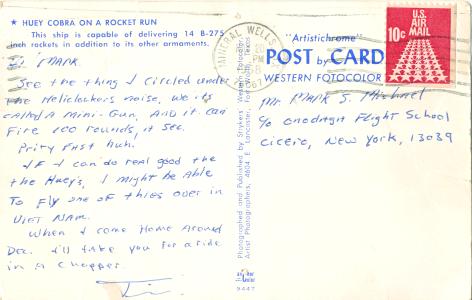 ★ HUEY COBRA ON A ROCKET RUN
This ship is capable of delivering 14 B-275
inch rockets in addition to its other armaments.
Hi MARK
See the thing I circled under
the Helicopters nose, we its
called A mini-Gun, And it can
Fire 100 rounds, A sec.
Prity Fast huh.
IF I can do real good the
the Huey's, I might be Able
To Fly one of thies over in
VIET NAM.
When I come Home Around
Dec. I'll take you for a ride
in A Chopper.
Tim
MINERAL WELLS
PM
1967
"Artistichrome"
POST by CARD
WESTERN FOTOCOLOR
U.S.
AIR MAIL
10c
Mr MARK S. Michael
c/o Onodagit Flight School
Cicero, New York, 13039
Photographed and Published by Strykers' Western Fotocolor
Artist Photographers, 4604 E. Lancaster, Fort Worth, Texas
9447